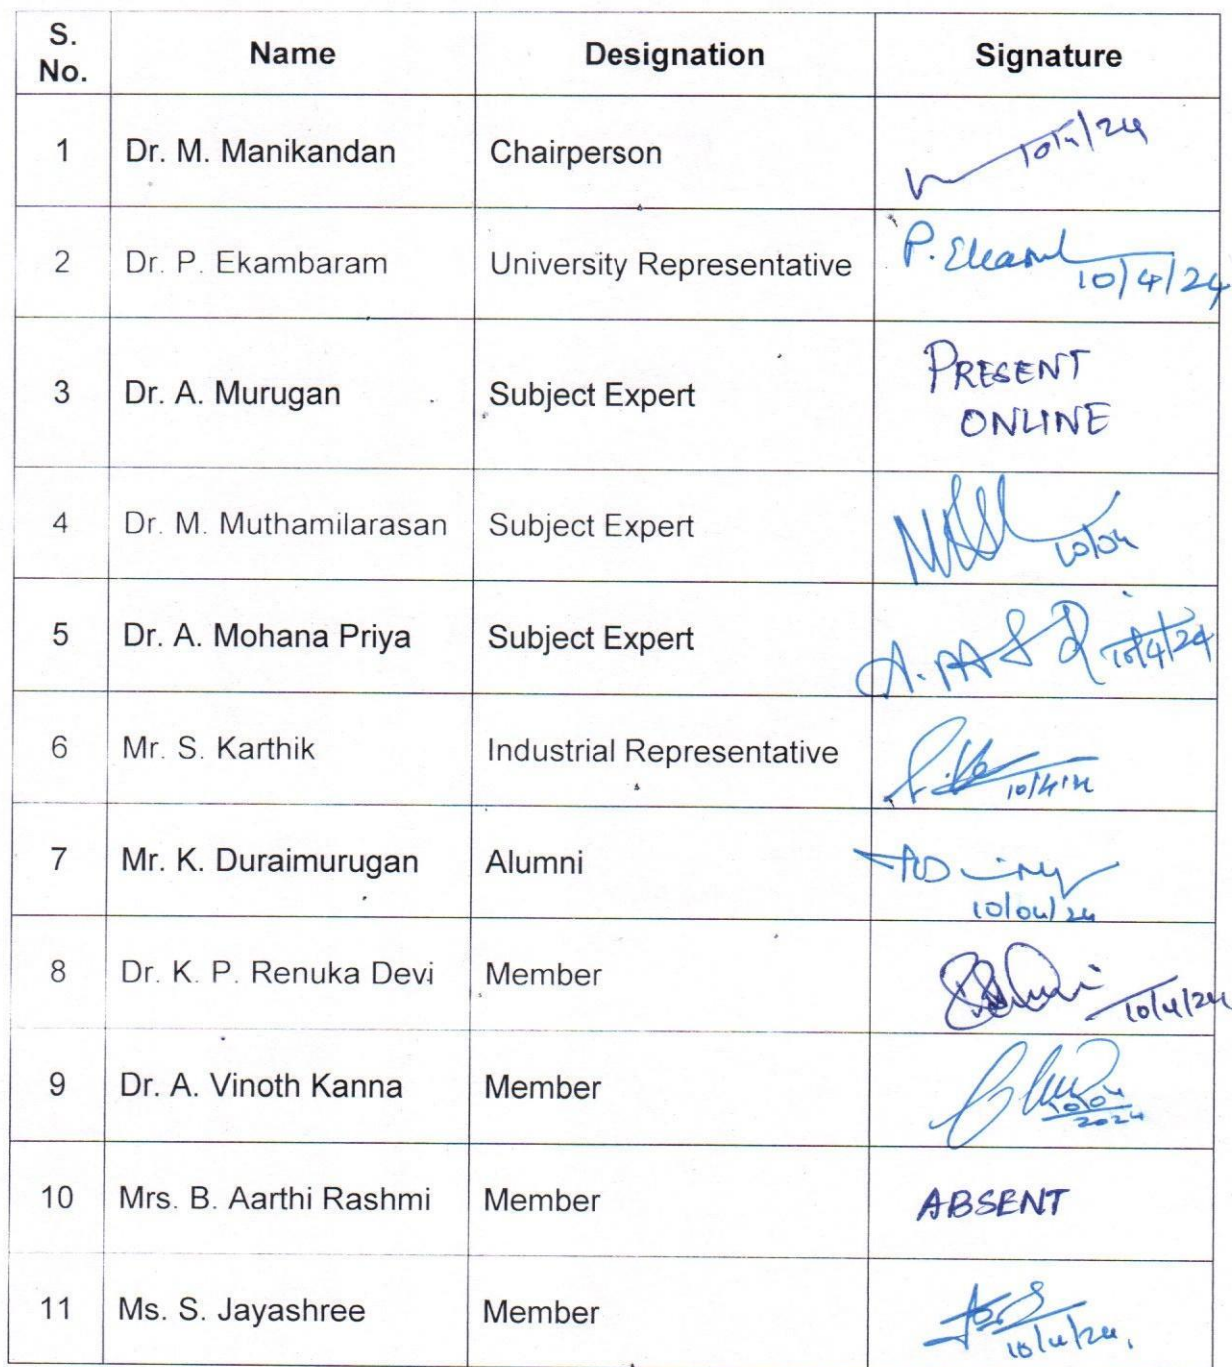 S. No. Name Designation Signature
1 Dr. M. Manikandan Chairperson 10/4/24
2 Dr. P. Ekambaram University Representative P. Ekam 10/4/24
3 Dr. A. Murugan Subject Expert PRESENT ONLINE
4 Dr. M. Muthamilarasan Subject Expert 10/04
5 Dr. A. Mohana Priya Subject Expert 10/4/24
6 Mr. S. Karthik Industrial Representative 10/4/24
7 Mr. K. Duraimurugan Alumni 10/04/24
8 Dr. K. P. Renuka Devi Member 10/4/24
9 Dr. A. Vinoth Kanna Member 10/04/2024
10 Mrs. B. Aarthi Rashmi Member ABSENT
11 Ms. S. Jayashree Member 10/4/24.